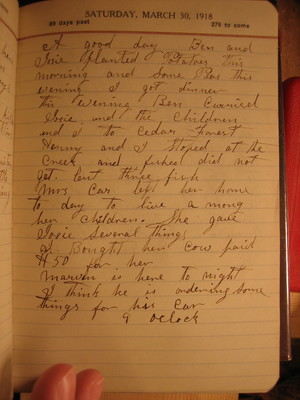 SATURDAY, MARCH 30, 1918
89 days past 276 to come
A good day Ben and
Josie Planted Potatoes this
morning and Some Peas this
evening I got dinner
this evening Ben Carried
Josie and the Children
and I to Cedar Forest
Henry and I stoped at the
Creek and fished did not
get but three fish
Mrs Car left her home
to day to live a mong
her Children. She gave
Josie Several things
Bought her Cow paid
$50 for her
Marvin is here to night
I think he is ordering some
things for his Car
9 oclock